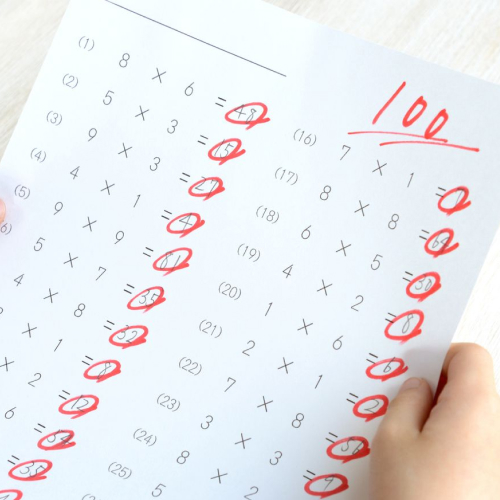 100
(1) 8 × 6 = 48
(2) 5 × 3 = 15
(3) 9 × 3 = 27
(4) 4 × 1 = 4
(5) 9 × 9 = 81
5 × 7 = 35
4 × 8 = 32
× 1 = 8
× 2 = 12
6 = 54
= 35
(16) 7 × 1 = 7
(17) 8 × 8 = 64
(18) 6 × 5 = 30
(19) 4 × 2 = 8
(20) 1 × 6 = 6
(21) 2 × 1 = 2
(22) 7 × 8 = 56
(23) 3 × 3 = 9
(24) 8 × 2
(25) 5